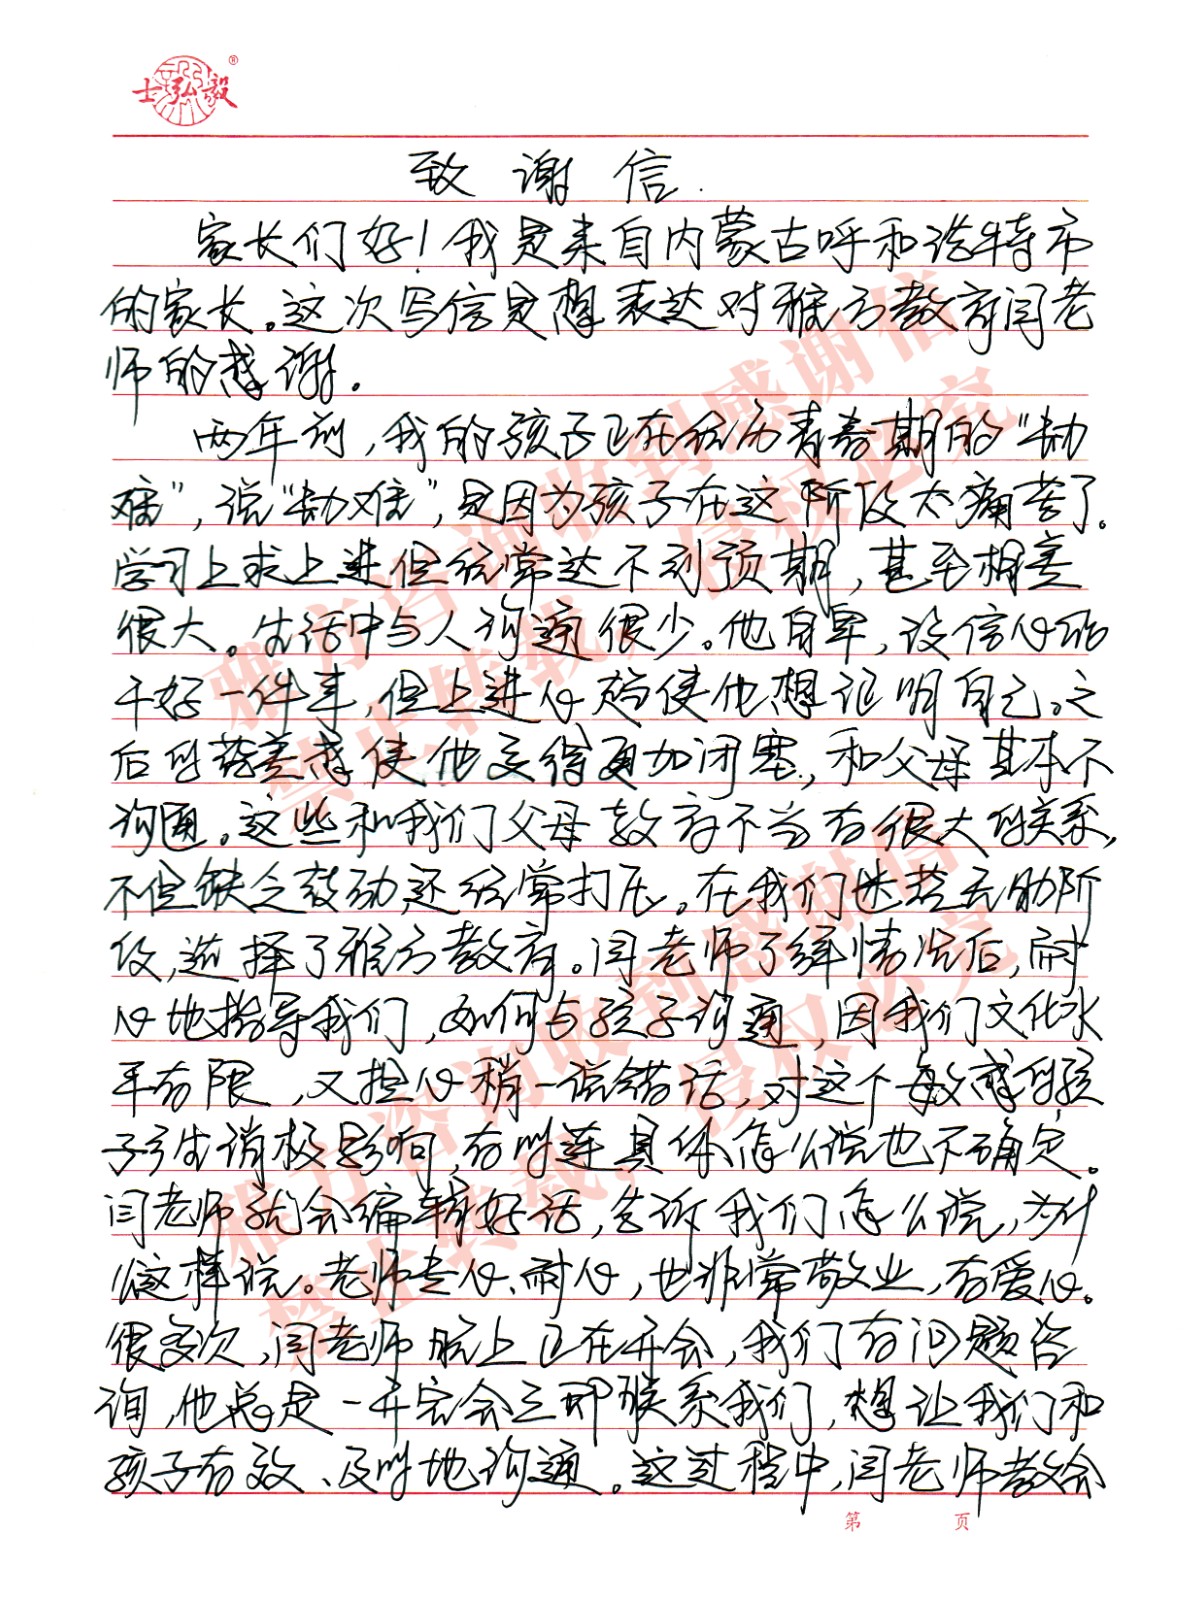 士弘毅®
致谢信.
家长们好！我是来自内蒙古呼和浩特市
的家长。这次写信是想表达对雅方教育闫老
师的感谢。
两年前，我的孩子正在经历青春期的“劫
难”，说“劫难”，是因为孩子在这阶段太痛苦了。
学习上求上进但经常达不到预期，甚至相差
很大。生活中与人沟通很少。他自卑，没信心能
干好一件事，但上进心趋使他想证明自己。之
后的落差感使他变得更加闭塞，和父母基本不
沟通。这些和我们父母教育不当有很大的关系，
不但缺乏鼓动还经常打压。在我们迷茫无助阶
段，选择了雅方教育。闫老师了解情况后，耐
心地指导我们，如何与孩子沟通，因我们文化水
平有限，又担心稍一说错话，对这个敏感的孩
子产生消极影响，有时连具体怎么说也不确定。
闫老师就会编辑好话，告诉我们怎么说，为什
么这样说。老师专心、耐心，也非常敬业，有爱心。
很多次，闫老师晚上正在开会，我们有问题咨
询，他总是一开完会立即联系我们，想让我们和
孩子有效、及时地沟通。这过程中，闫老师教会
第 页
雅方咨询收到感谢信
禁止转载，侵权必究
雅方咨询收到感谢信
禁止转载，侵权必究